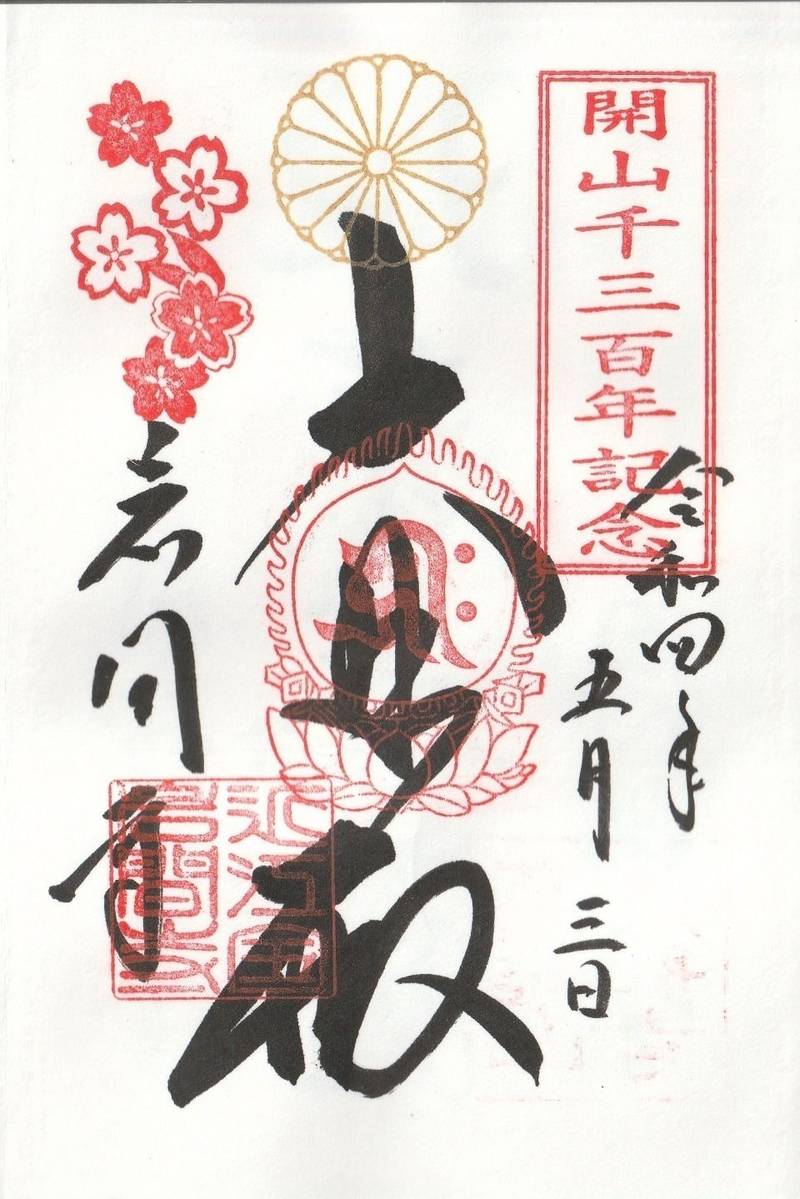 開山千三百年記念
令和四年
五月三日
大悲殿
岩間寺
近江国
岩間寺